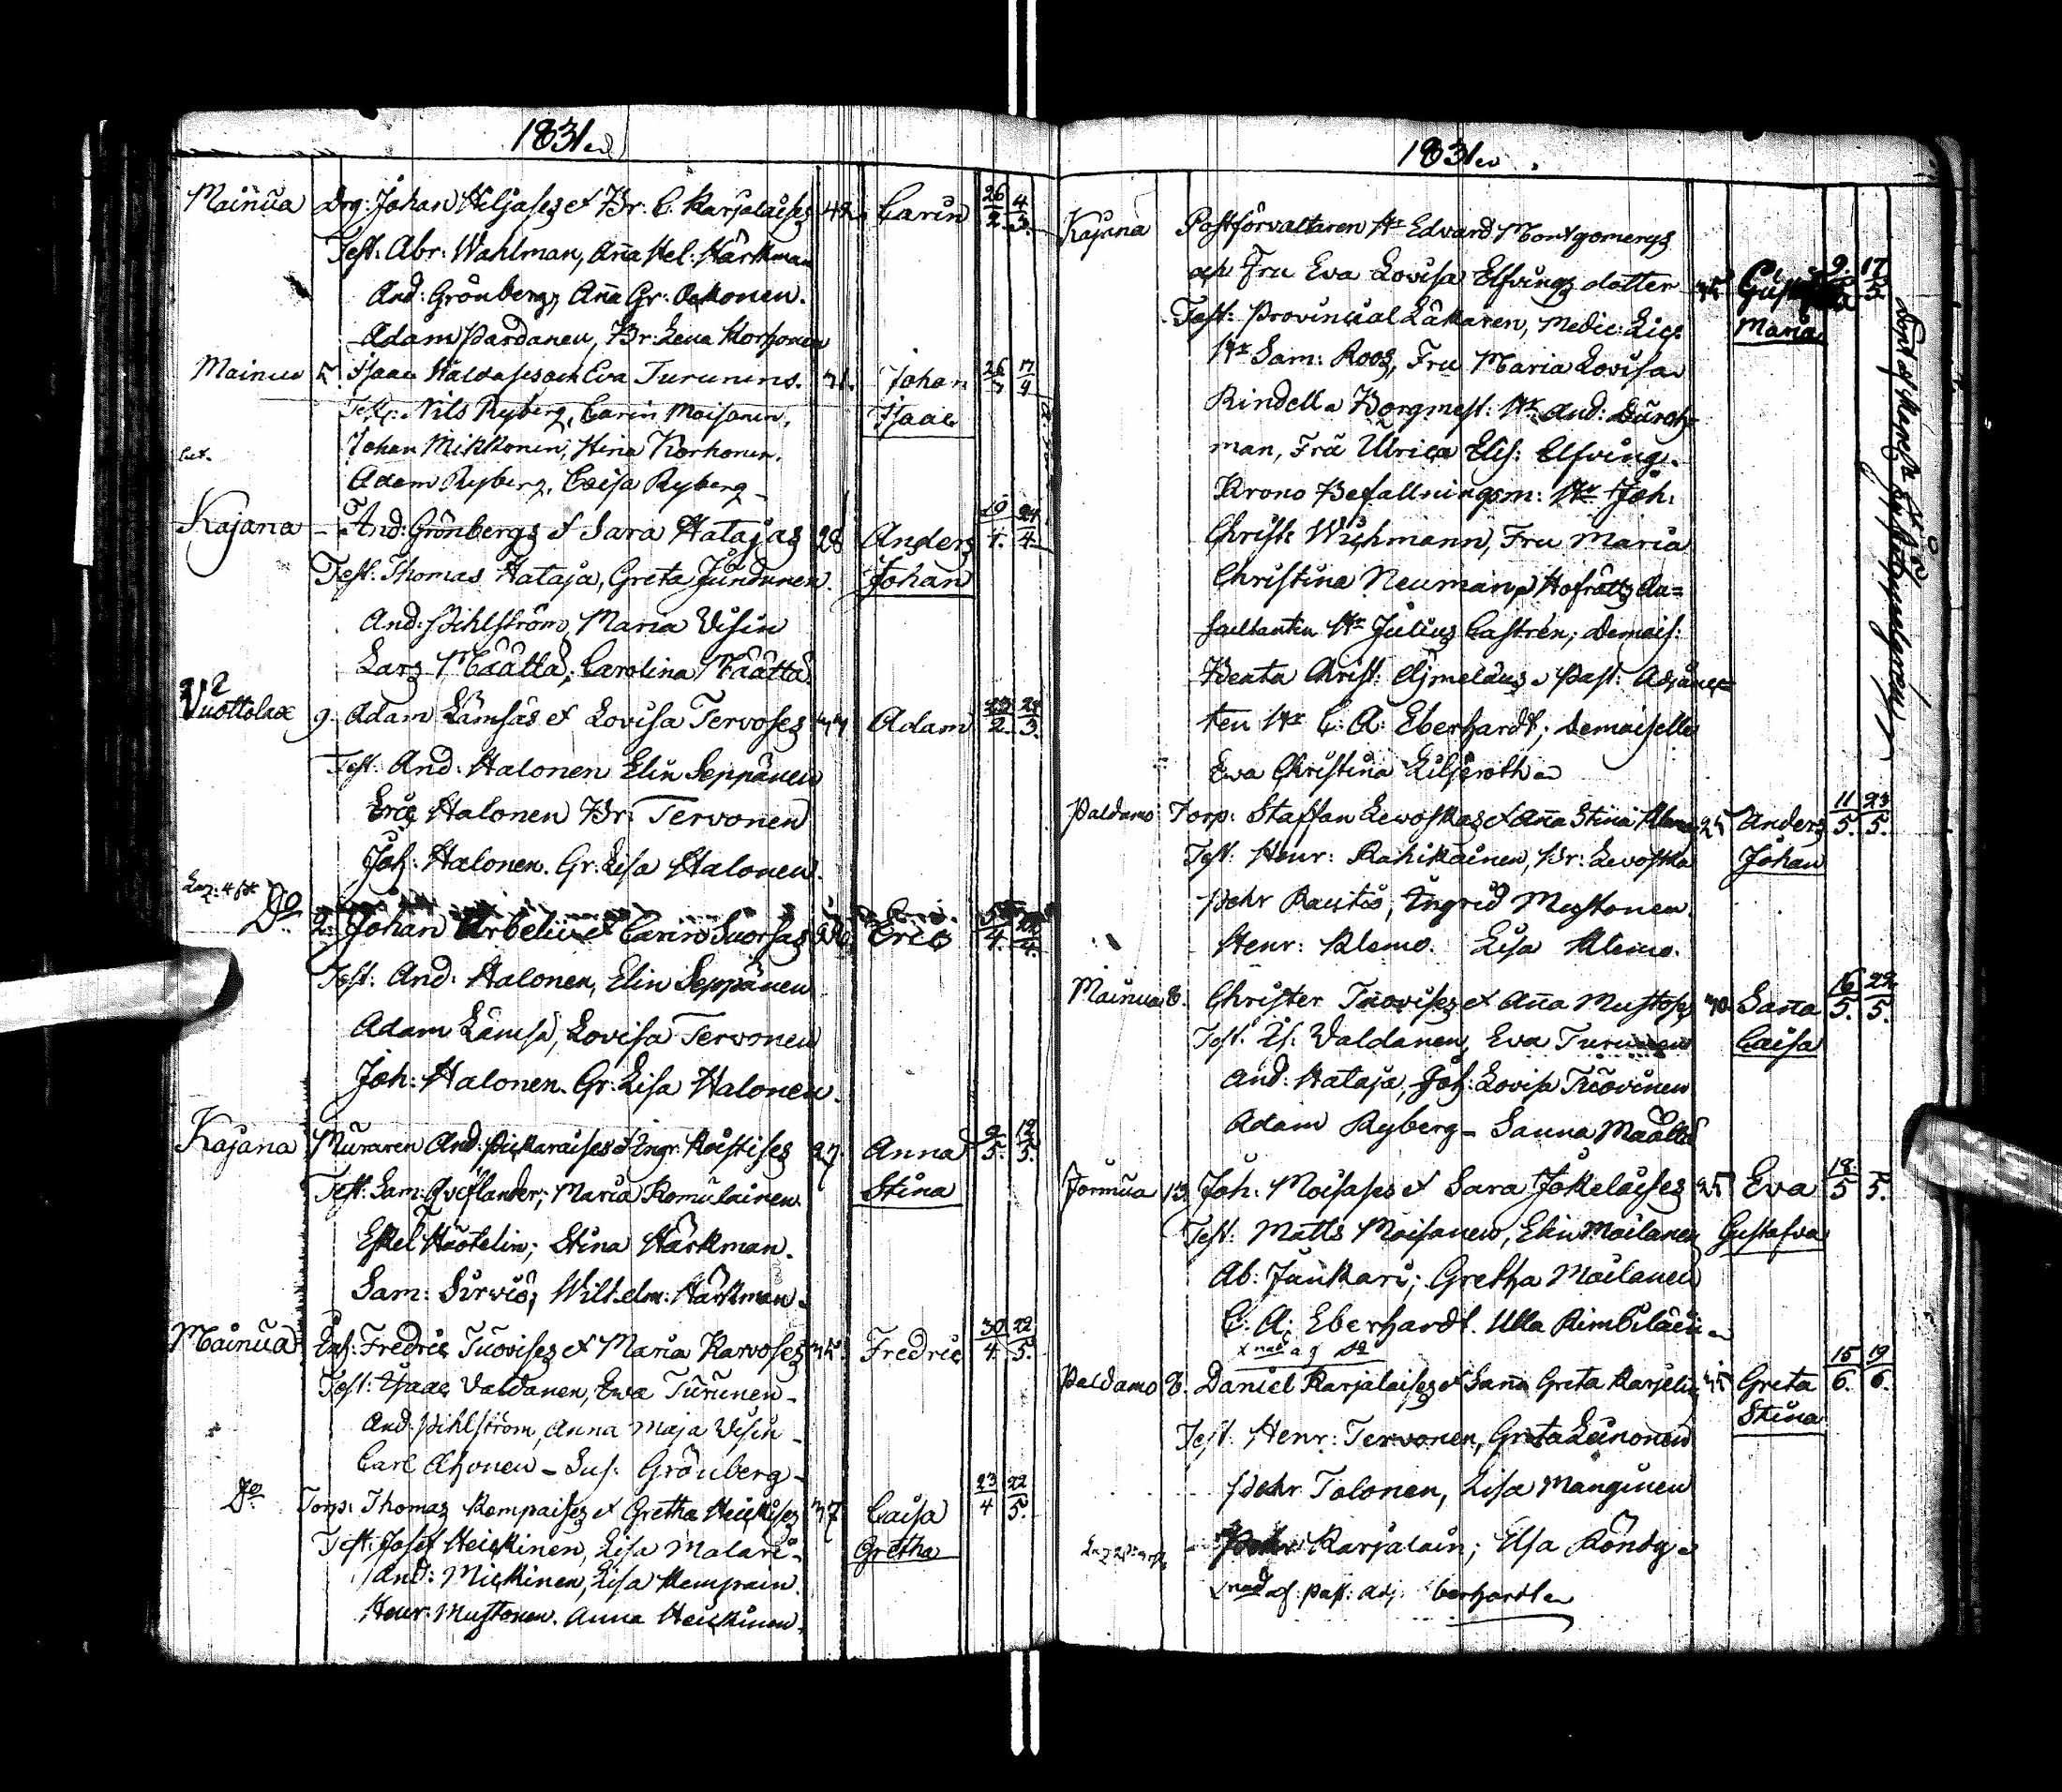 1831
Mainua Drg: Johan Hiljases et Br: C. Karjalaises 42. Carin 26/2 4/3.
Test: Abr: Wahlman, Anna Hel: Härkman
And: Grönberg, Anna Gr: Oikonen.
Adam Pardanen, Br: Lena Korhonen
Mainua 7. Isaac Valdases och Eva Turunens. 31. Johan 26/3 17/4
Test: Nils Ryberg, Carin Moisanen. Isaac
Johan Mikkonen, Hena Korhonen.
Adam Ryberg, Caisa Ryberg
Kajana And: Grönbergs et Sara Hatajas 28 Anders 24/4
Test: Thomas Hataja, Greta Jundunen. Johan
And: Pihlström, Maria Visin
Lars Määttä; Carolina Määttä.
Vuottolax 9. Adam Lämsäs et Lovisa Tervoses 44 Adam 23/2. 24/3.
Test: And: Halonen Elin Seppänen
Eric Halonen Br: Tervonen
Joh: Halonen. Gr: Lisa Halonen.
Do 2. Johan et Carin Suorsas 26 Eric 5/4.
Test: And: Halonen, Elin Seppänen
Adam Lämsä, Lovisa Tervonen
Joh: Halonen. Gr: Lisa Halonen.
Kajana Muraren And: Pickaraises et Ingr: Koistises 27. Anna 9/5. 12/5.
Test: Sam: Qveflander; Maria Romulainen. Stina
Eskel Hästelin; Stina Härkman.
Sam: Sirviö; Wilhelm: Härkman.
Mainua Enh: Fredric Tuovises et Maria Karvoses 35. Fredric 30/4. 22/5.
Test: Isaac Valdanen, Ewa Turunen
And: Pihlström, Anna Maja Visin
Carl Ahonen – Sus: Grönberg
Do Torp: Thomas Kempaises et Gretha Heickises 37 Caisa 23/4 22/5.
Test: Josef Heickinen, Lisa Malari. Gretha
And: Mickinen, Lisa Kempain.
Henr: Mustonen. Anna Heickinen.
1831
Kajana Postförvaltaren Hr Edvard Montgomerys
och Fru Eva Lovisa Elfvings dotter 35 9/5 17/5
Test: Provincial Läkaren, Medic: Lic: Maria
Hr Sam: Roos, Fru Maria Lovisa
Rindell Borgmest: Hr And: Dürch-
man, Fru Ulrica Elis: Elfving.
Krono Befallningsm: Hr Joh:
Christ: Wichmann, Fru Maria
Christina Neuman, Hofrätts Au=
scultanten Hr Julius Castrén; Demois:
Beata Christ: Ajmelæus Past: Adjunc=
ten Hr C: A: Eberhardt; Demoiselle
Ewa Christina Liljeroth
Paldamo Torp: Staffan Levoskas et Anna Stina Klemos 25 Anders 11/5. 23/5.
Test: Henr: Kahikainen, Br: Levoska Johan
Pehr Rautio, Ingrid Mustonen.
Henr: Klemo. Lisa Klemo.
Mainua 8. Christer Tuovises et Anna Mustoses 40. Sanna 16/5. 22/5.
Test: Is: Valdanen, Eva Turunen Caisa
And: Hataja, Joh: Lovisa Tuovinen
Adam Ryberg – Sanna Määttä
Jormua 13. Joh: Moisases et Sara Jokelaises 25 Eva 18/5 5.
Test: Matts Moisanen, Elin Moilanen Gustafva
Ab: Junkari; Gretha Moilanen
C: A: Eberhardt. Ulla Rimbiläin
Paldamo 8. Daniel Karjalaises et Sanna Greta Karjalain 35 Greta 15/6. 19/6.
Test: Henr: Tervonen, Greta Leinonen Stina
Pehr Tolonen, Lisa Manginen
Pehr Karjalain; Elsa Köndg